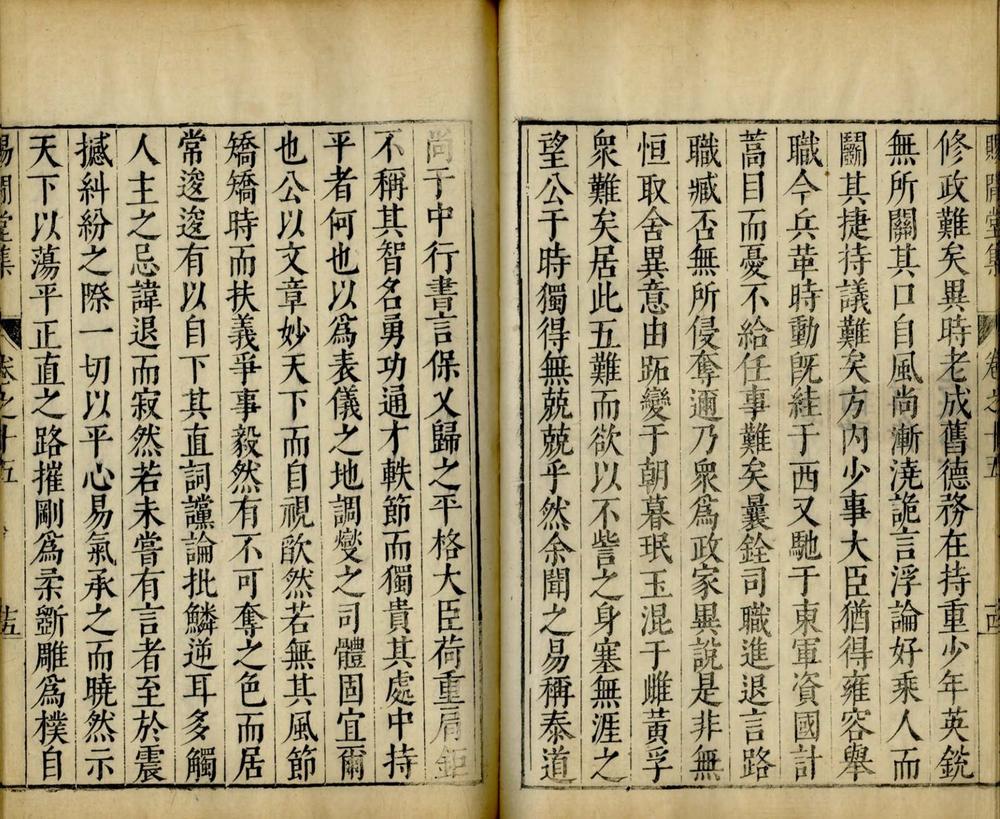 賜閒堂集 卷之十五 廿四
修政難矣異時老成舊德務在持重少年英銳
無所關其口自風尚漸澆詭言浮論好乘人而
鬭其捷持議難矣方內少事大臣猶得雍容舉
職今兵革時動旣絓于西又馳于東軍資國計
蒿目而憂不給任事難矣曩銓司職進退言路
職臧否無所侵奪邇乃衆爲政家異說是非無
恒取舍異意由跖變于朝暮珉玉混于雌黃孚
衆難矣居此五難而欲以不訾之身塞無涯之
望公于時獨得無兢兢乎然余聞之易稱泰道
尚于中行書言保乂歸之平格大臣荷重肩鉅
不稱其智名勇功通才軼節而獨貴其處中持
平者何也以爲表儀之地調燮之司體固宜爾
也公以文章妙天下而自視歉然若無其風節
矯矯時而扶義爭事毅然有不可奪之色而居
常逡逡有以自下其直詞讜論批鱗逆耳多觸
人主之忌諱退而寂然若未嘗有言者至於震
撼糾紛之際一切以平心易氣承之而曉然示
天下以蕩平正直之路摧剛爲柔斲雕爲樸自
賜閒堂集 卷之十五 廿五